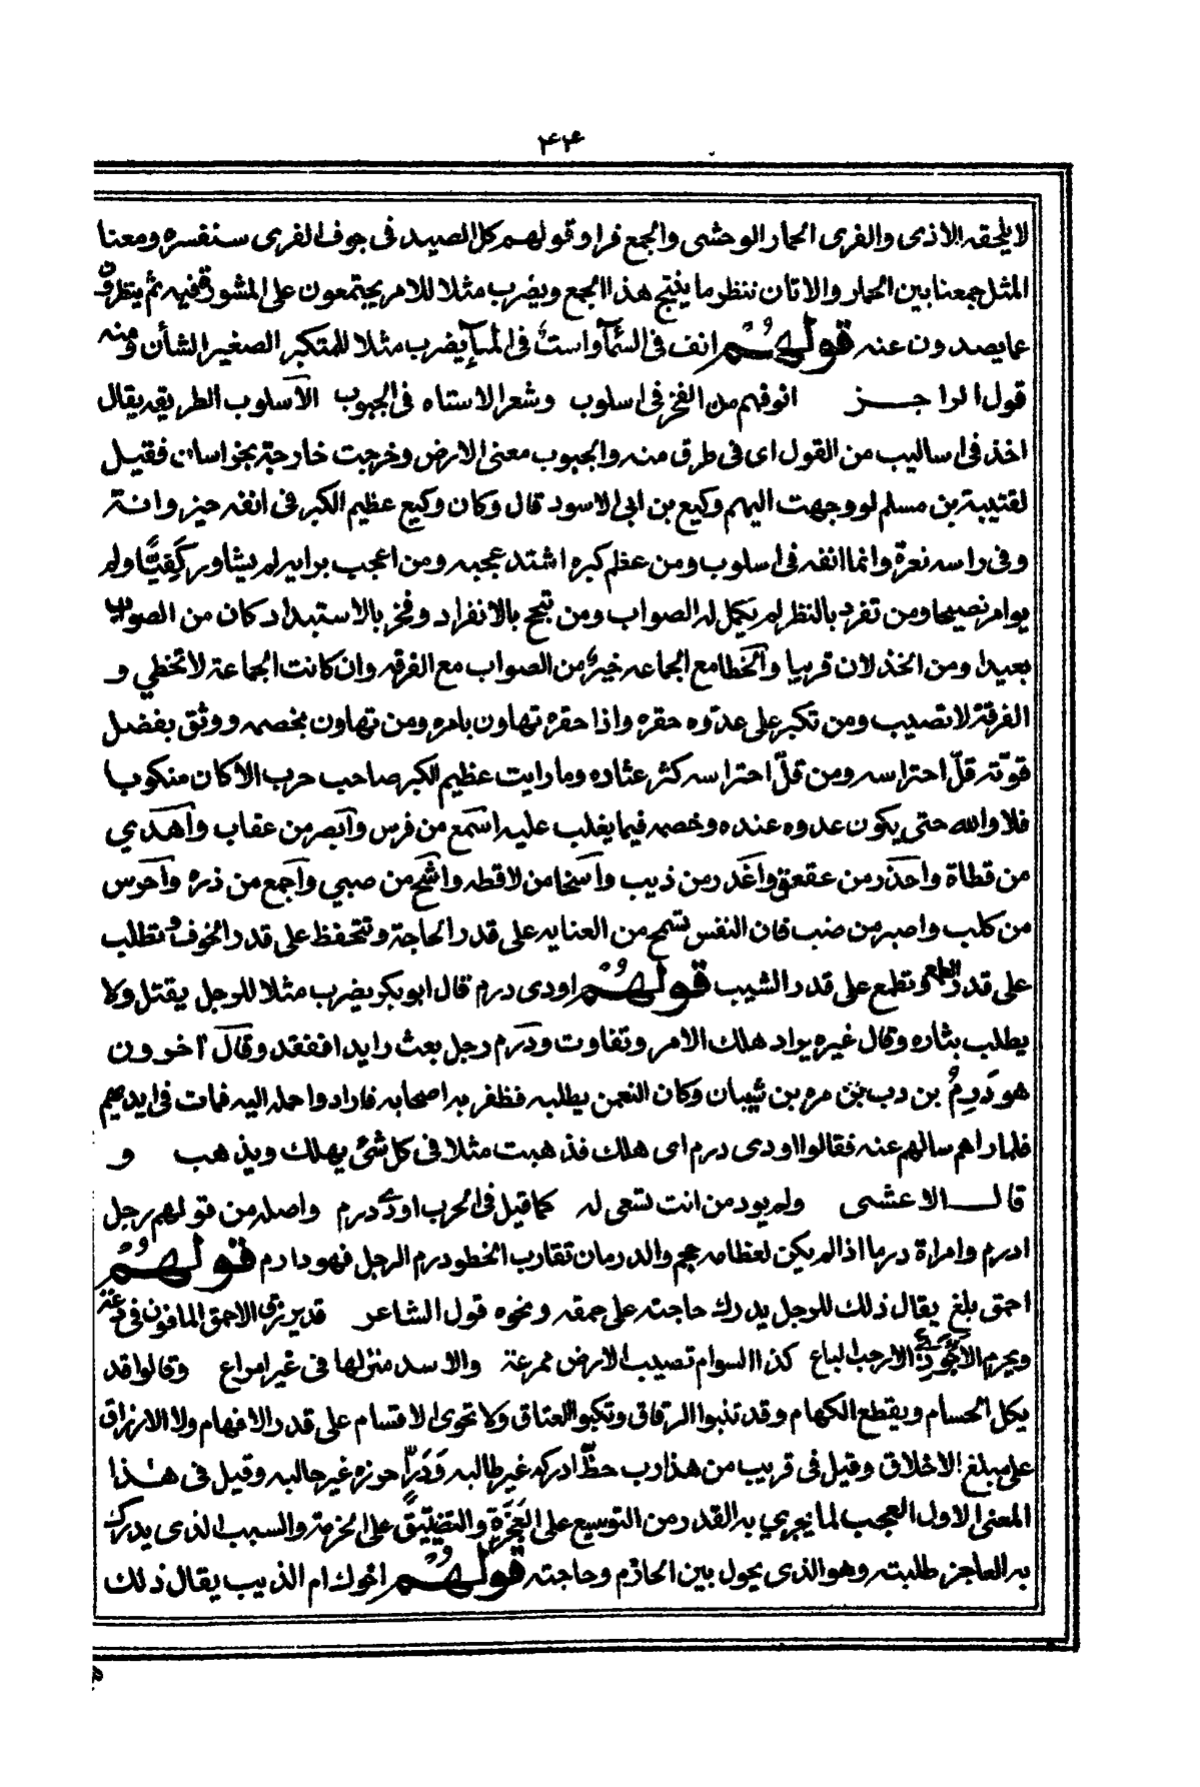 ٤٤
لا يلحقه الاذى والفرى الحمار الوحشى والجمع فرا وقولهم كل الصيد فى جوف الفرى سنفسره ومعنا
المثل جمعنا بين الحمار والاتان ننظر ما ينتج هذا الجمع ويضرب مثلا للامر يجتمعون على المشورة فيه ثم ينظرون
عما يصدون عنه قولهم انف فى السمآء واست فى المآء يضرب مثلا للمتكبر الصغير الشأن ومنه
قول الراجز انوفهم من الفخر فى اسلوب وشعر الاستاه فى الجبوب الاسلوب الطريقه يقال
اخذ فى اساليب من القول اى فى طرق منه والجبوب معنى الارض وخرجت خارجة بخراسان فقيل
لقتيبة بن مسلم لو وجهت اليهم وكيع بن ابى الاسود قال وكان وكيع عظيم الكبر فى انفه خنزوانة
وفى راسه نعرة وانما انفه فى اسلوب ومن عظم كبره اشتد عجبه ومن اعجب برايه لم يشاور كَفِيًّا ولم
يوامر نصيحا ومن تفرد بالنظر لم يكمل له الصواب ومن تبجح بالانفراد وفخر بالاستبداد كان من الصواب
بعيدا ومن الخذلان قريبا والخطا مع الجماعه خير من الصواب مع الفرقه وان كانت الجماعة لا تخطي و
الفرقة لا تصيب ومن تكبر على عدوه حقره واذا حقره تهاون بامره ومن تهاون بخصمه ووثق بفضل
قوّته قلّ احتراسه ومن قلّ احتراسه كثر عثاده وما رايت عظيم الكبر صاحب حرب الا كان منكوبا
فلا والله حتى يكون عدوه عنده وخصمه فيما يغلب عليه اسمع من فرس وابصر من عقاب واهدي
من قطاة واحذر من عقعق واغدر من ذيب واسخا من لاقطه واشح من صبي واجمع من ذره واحرس
من كلب واصبر من ضب فان النفس تسمح من العنايه على قدر الحاجة وتتحفظ على قدر الخوف وتطلب
على قدر الطمع وتطمع على قدر الشيب قولهم اودى درم قال ابو بكر يضرب مثلا للرجل يقتل ولا
يطلب بثاره وقال غيره يراد هلك الامر وتفاوت ودرم رجل بعث رايدا ففقد وقال آخرون
هو دَرِمُ بن دب بن مره بن شيبان وكان النعمن يطلبه فظفر به اصحابه فاراد واحمله اليه فمات فى ايديهم
فلما راهم سالهم عنه فقالوا اودى درم اى هلك فذهبت مثلا فى كل شئ يهلك ويذهب و
قال الاعشى ولم يود من انت تسعى له كما قيل فى الحرب اودى درم واصله من قولهم رجل
ادرم وامراة درما اذا لم يكن لعظامه حجم والدرمان تقارب الخطو درم الرجل فهو دارم قولهم
احمق بلغ يقال ذلك للرجل يدرك حاجته على حمقه ونحوه قول الشاعر قد يرزق الاحمق المافون فى دعة
ويحرم الاحوذى الارحب الباع كذا السوام تصيب الارض ممرعة والاسد منزلها فى غير امراع وقالوا قد
يكل الحسام ويقطع الكهام وقد تنبوا الرقاق وتكبوا العتاق ولا تحوى الاقسام على قدر الافهام ولا الارزاق
على مبلغ الاخلاق وقيل فى قريب من هذا رب حظّ ادركه غير طالبه وَدَرٍّ حوزه غير حالبه وقيل فى هذا
المعنى الاول العجب لما يجري به القدر من التوسيع على العَجَزَة والتضييق على الحزمة والسبب الذى يدرك
به العاجز طلبته وهو الذى يحول بين الحازم وحاجته قولهم اخوك ام الذيب يقال ذلك